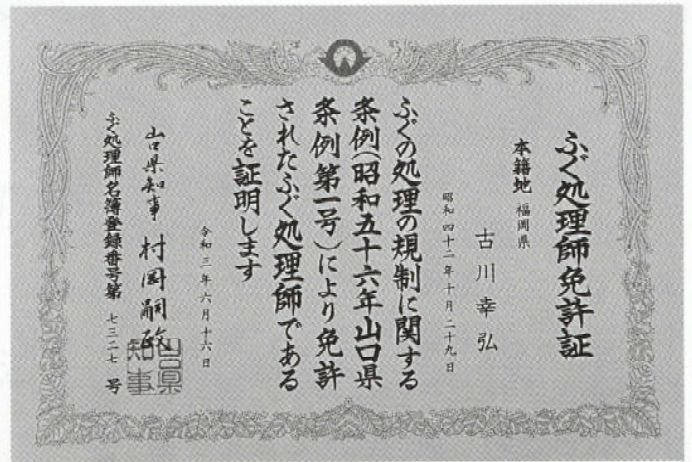 ふぐ処理師免許証
本籍地 福岡県
古川幸弘
昭和四十二年十月二十九日
ふぐの処理の規制に関する
条例(昭和五十六年山口県
条例第一号)により免許
されたふぐ処理師である
ことを証明します
令和三年六月十六日
山口県知事 村岡嗣政
山口県
知事
ふぐ処理師名簿登録番号第 七三二七 号